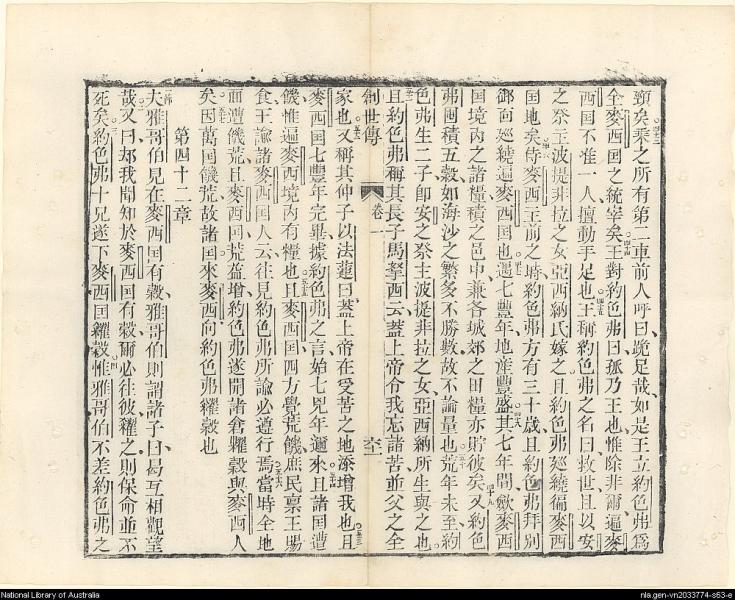 頸矣乘之所有第二車前人呼曰跪足哉如是王立約色弗爲
全麥西国之統宰矣王對約色弗曰孤乃王也惟除非爾遍麥
西国不准一人擅動手足也王稱約色弗之名曰救世且以安
之祭主波提非拉之女亞西納氏嫁之且約色弗廵繞徧麥西
国地矣侍麥西王前之時約色弗方有三十歲且約色弗拜別
御面廵繞遍麥西国也遇七豐年地產豐盛其七年間歛麥西
国境內之諸糧積之邑中兼各城郊之田糧亦貯彼矣又約色
弗囤積五穀如海沙之繁多不勝數故不論量也荒年未至約
色弗生二子卽安之祭主波提非拉之女亞西納所生與之也
且約色弗稱其長子馬拏西云葢上帝令我忘諸苦並父之全
創世傳 卷一
家也又稱其仲子以法蓮曰葢上帝在受苦之地添增我也且
麥西国七豐年完畢據約色弗之言始七兇年邇來且諸国遭
饑惟遍麥西境內有糧也且麥西国四方覺荒饑庶民禀王賜
食王諭諸麥西国人云往見約色弗所諭必遵行焉當時全地
面遭饑荒且麥西国荒益增約色弗遂開諸倉糶穀與麥西人
矣因萬国饑荒故諸国來麥西向約色弗糴穀也
第四十二章
夫雅哥伯見在麥西国有穀雅哥伯則謂諸子曰曷互相觀望
哉又曰却我聞知於麥西国有穀爾必往彼糴之則保命並不
死矣約色弗十兄遂下麥西国糴穀惟雅哥伯不差約色弗之
National Library of Australia
nla.gen-vn2033774-s63-e